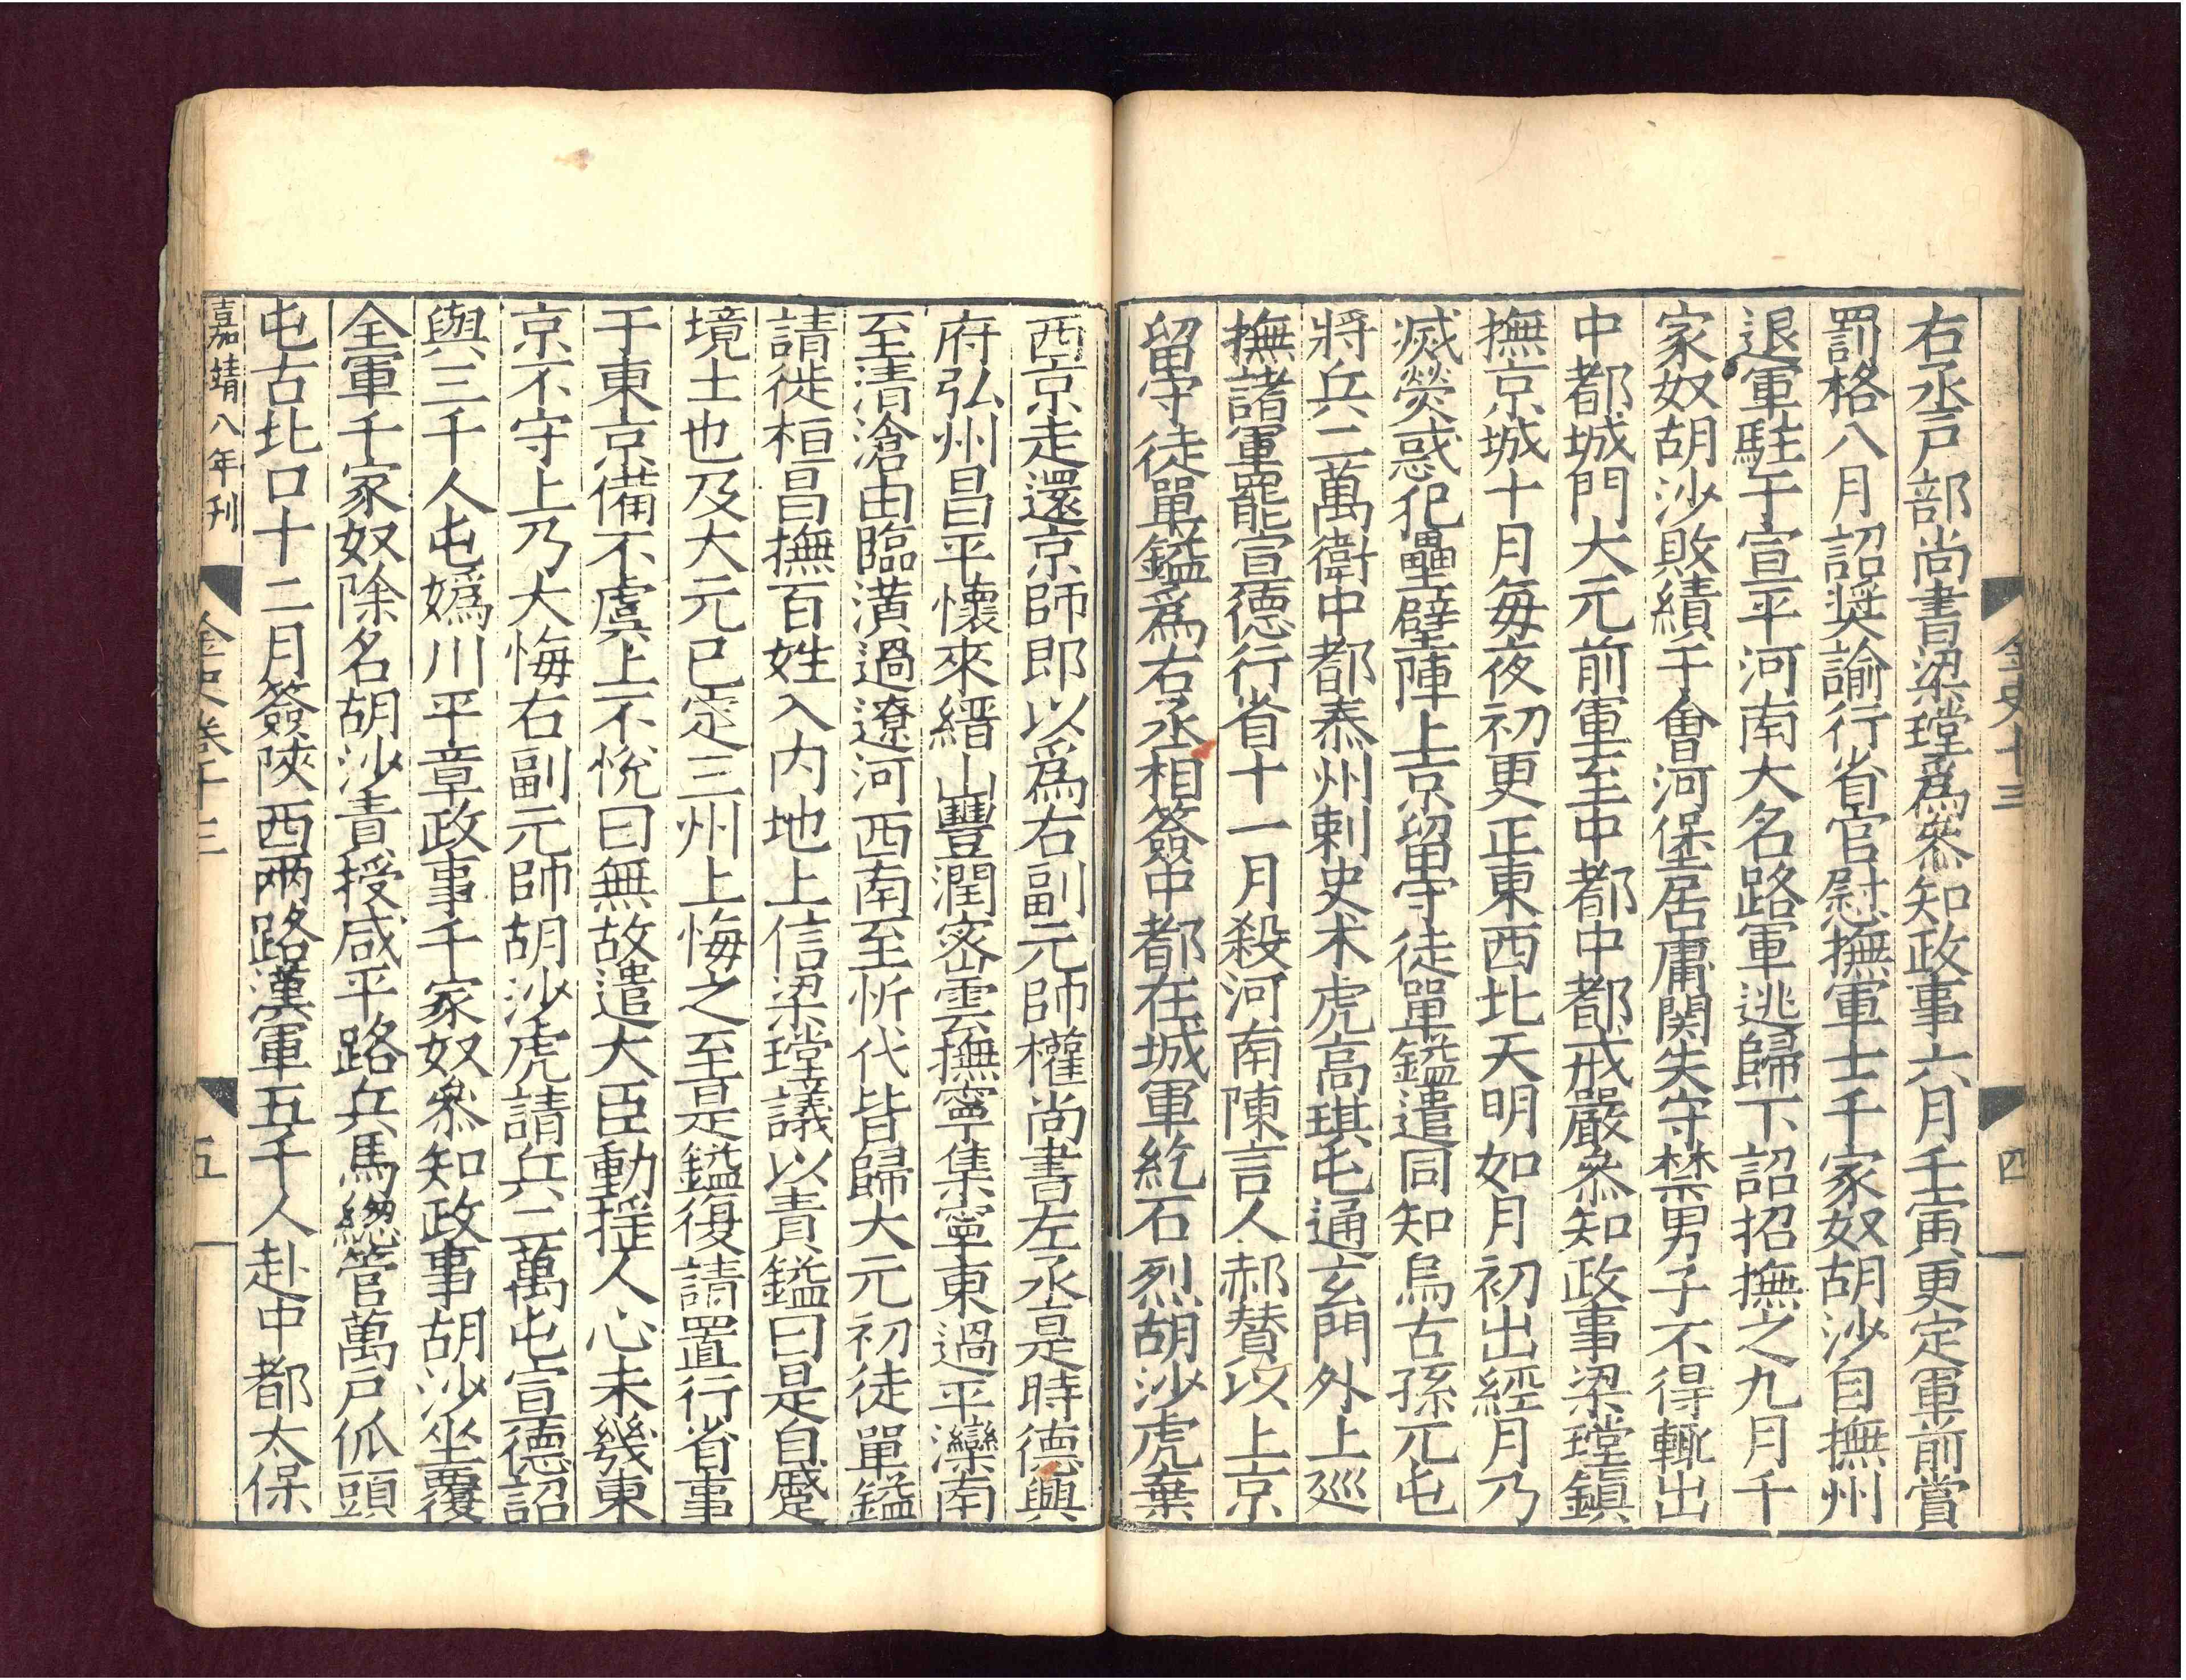 金史十三
四
右丞戸部尚書梁瑝爲叅知政事六月壬寅更定軍前賞
罰格八月詔奨諭行省官慰撫軍士千家奴胡沙自撫州
退軍駐于宣平河南大名路軍逃歸下詔招撫之九月千
家奴胡沙敗績于會河堡居庸関失守禁男子不得輒出
中都城門大元前軍至中都中都戒嚴叅知政事梁瑝鎮
撫京城十月每夜初更正東西北天明如月初出經月乃
滅熒惑犯壘壁陣上京留守徒單鎰遣同知烏古孫兀屯
將兵二萬衛中都泰州刺史术虎高琪屯通玄門外上廵
撫諸軍罷宣德行省十一月殺河南陳言人郝賛以上京
留守徒單鎰爲右丞相簽中都在城軍紇石烈胡沙虎棄
西京走還京師即以爲右副元師權尚書左丞是時德興
府弘州昌平懷來縉山豐潤密雲撫寧集寧東過平灤南
至清滄由臨潢過遼河西南至忻代皆歸大元初徒單鎰
請徙桓昌撫百姓入内地上信梁瑝議以責鎰曰是自蹙
境土也及大元已定三州上悔之至是鎰復請置行省事
于東京備不虞上不悅曰無故遣大臣動揺人心未幾東
京不守上乃大悔右副元帥胡沙虎請兵二萬屯宣德詔
與三千人屯嬀川平章政事千家奴叅知政事胡沙坐覆
全軍千家奴除名胡沙責授咸平路兵馬緫管萬戸㧓頭
屯古北口十二月簽陝西兩路漢軍五千人赴中都太保
嘉靖八年刊
金史卷十三
五